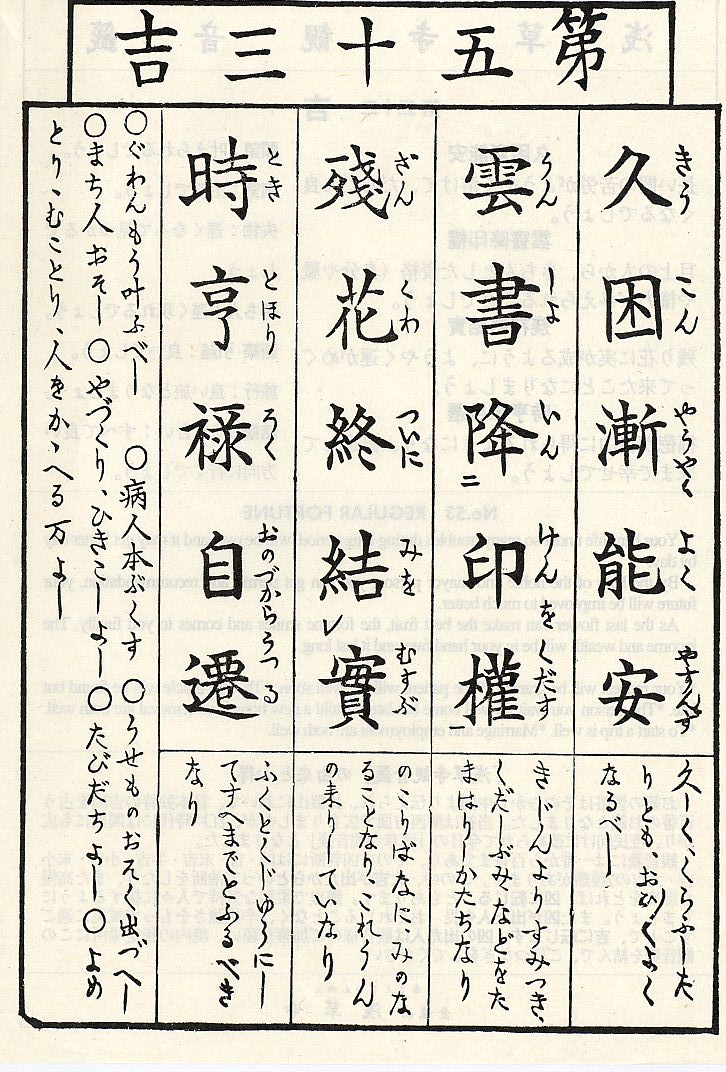 第五十三吉
久困漸能安
きう こん やうやく よく やすんず
久しくくらふしたりしも
なるべし
雲書降印權
うん しよ いん けんをくだす
くだしぶみなどをた
まはりかたちなり
殘花終結實
ざん くわ ついに みを むすぶ
のこりばなにみのな
ることなり、これうん
の来りていなり
時亨禄自遷
とき とほり ろく おのづからうつる
ふくとくじゆうにし
てすへまでとふるべき
なり
○ぐわんもう叶ふべし ○病人本ぶくす ○うせものおそく出づべし
○まち人おそし ○やづくり、ひきこしよし ○たびだちよし ○よめ
とり、むことり、人をかゝへる万よし